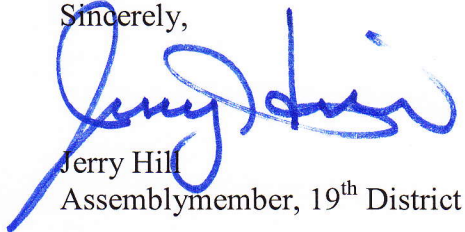 Sincerely,
Jerry Hill
Jerry Hill
Assemblymember, 19th District